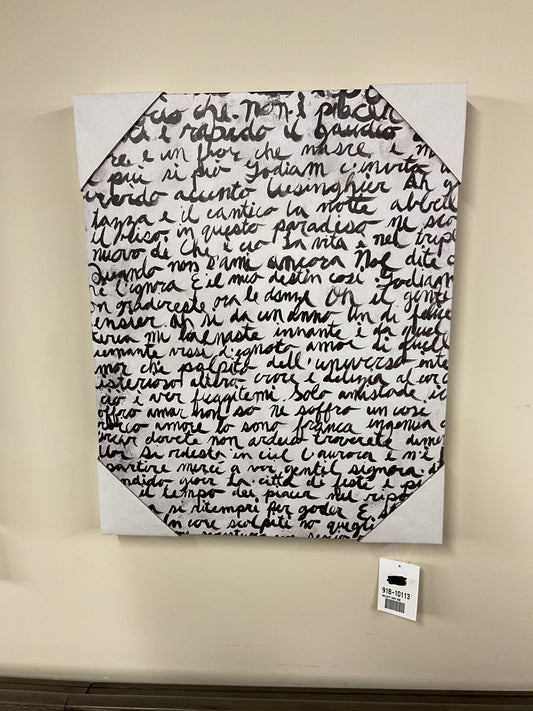 che non è piacer
è rapido il gaudio
re è un fior che nasce e m
più si può Godiam c'invita
ervido accento lusinghier Ah g
tanza e il cantico la notte abbell
il riso in questo paradiso ne sco
nuovo dì Che è ciò La vita è nel trip
Quando non s'ami ancora Nol dite c
he l'ignora È il mio destin così Godiam
on gradireste ora le danze Oh il genti
ensier Ah sì da un anno Un dì felice
erea mi balenaste innante e da quel
emante vissi d'ignoto amor Di quell
mor ch'è palpito dell'universo inte
isterioso altero croce e delizia al cor
ciò è ver fuggitemi Solo amistade io
offro amar non so né soffro un così
roico amore Io sono franca ingenua
ercar dovete non arduo troverete dimen
llor Si ridesta in ciel l'aurora e n'è
partire mercè a voi gentil signora di
ndido gioir La città di feste è pi
il tempo dei piacer nel ripo
si ritempri per goder È st
in core scolpiti ho quegli
91B-10113